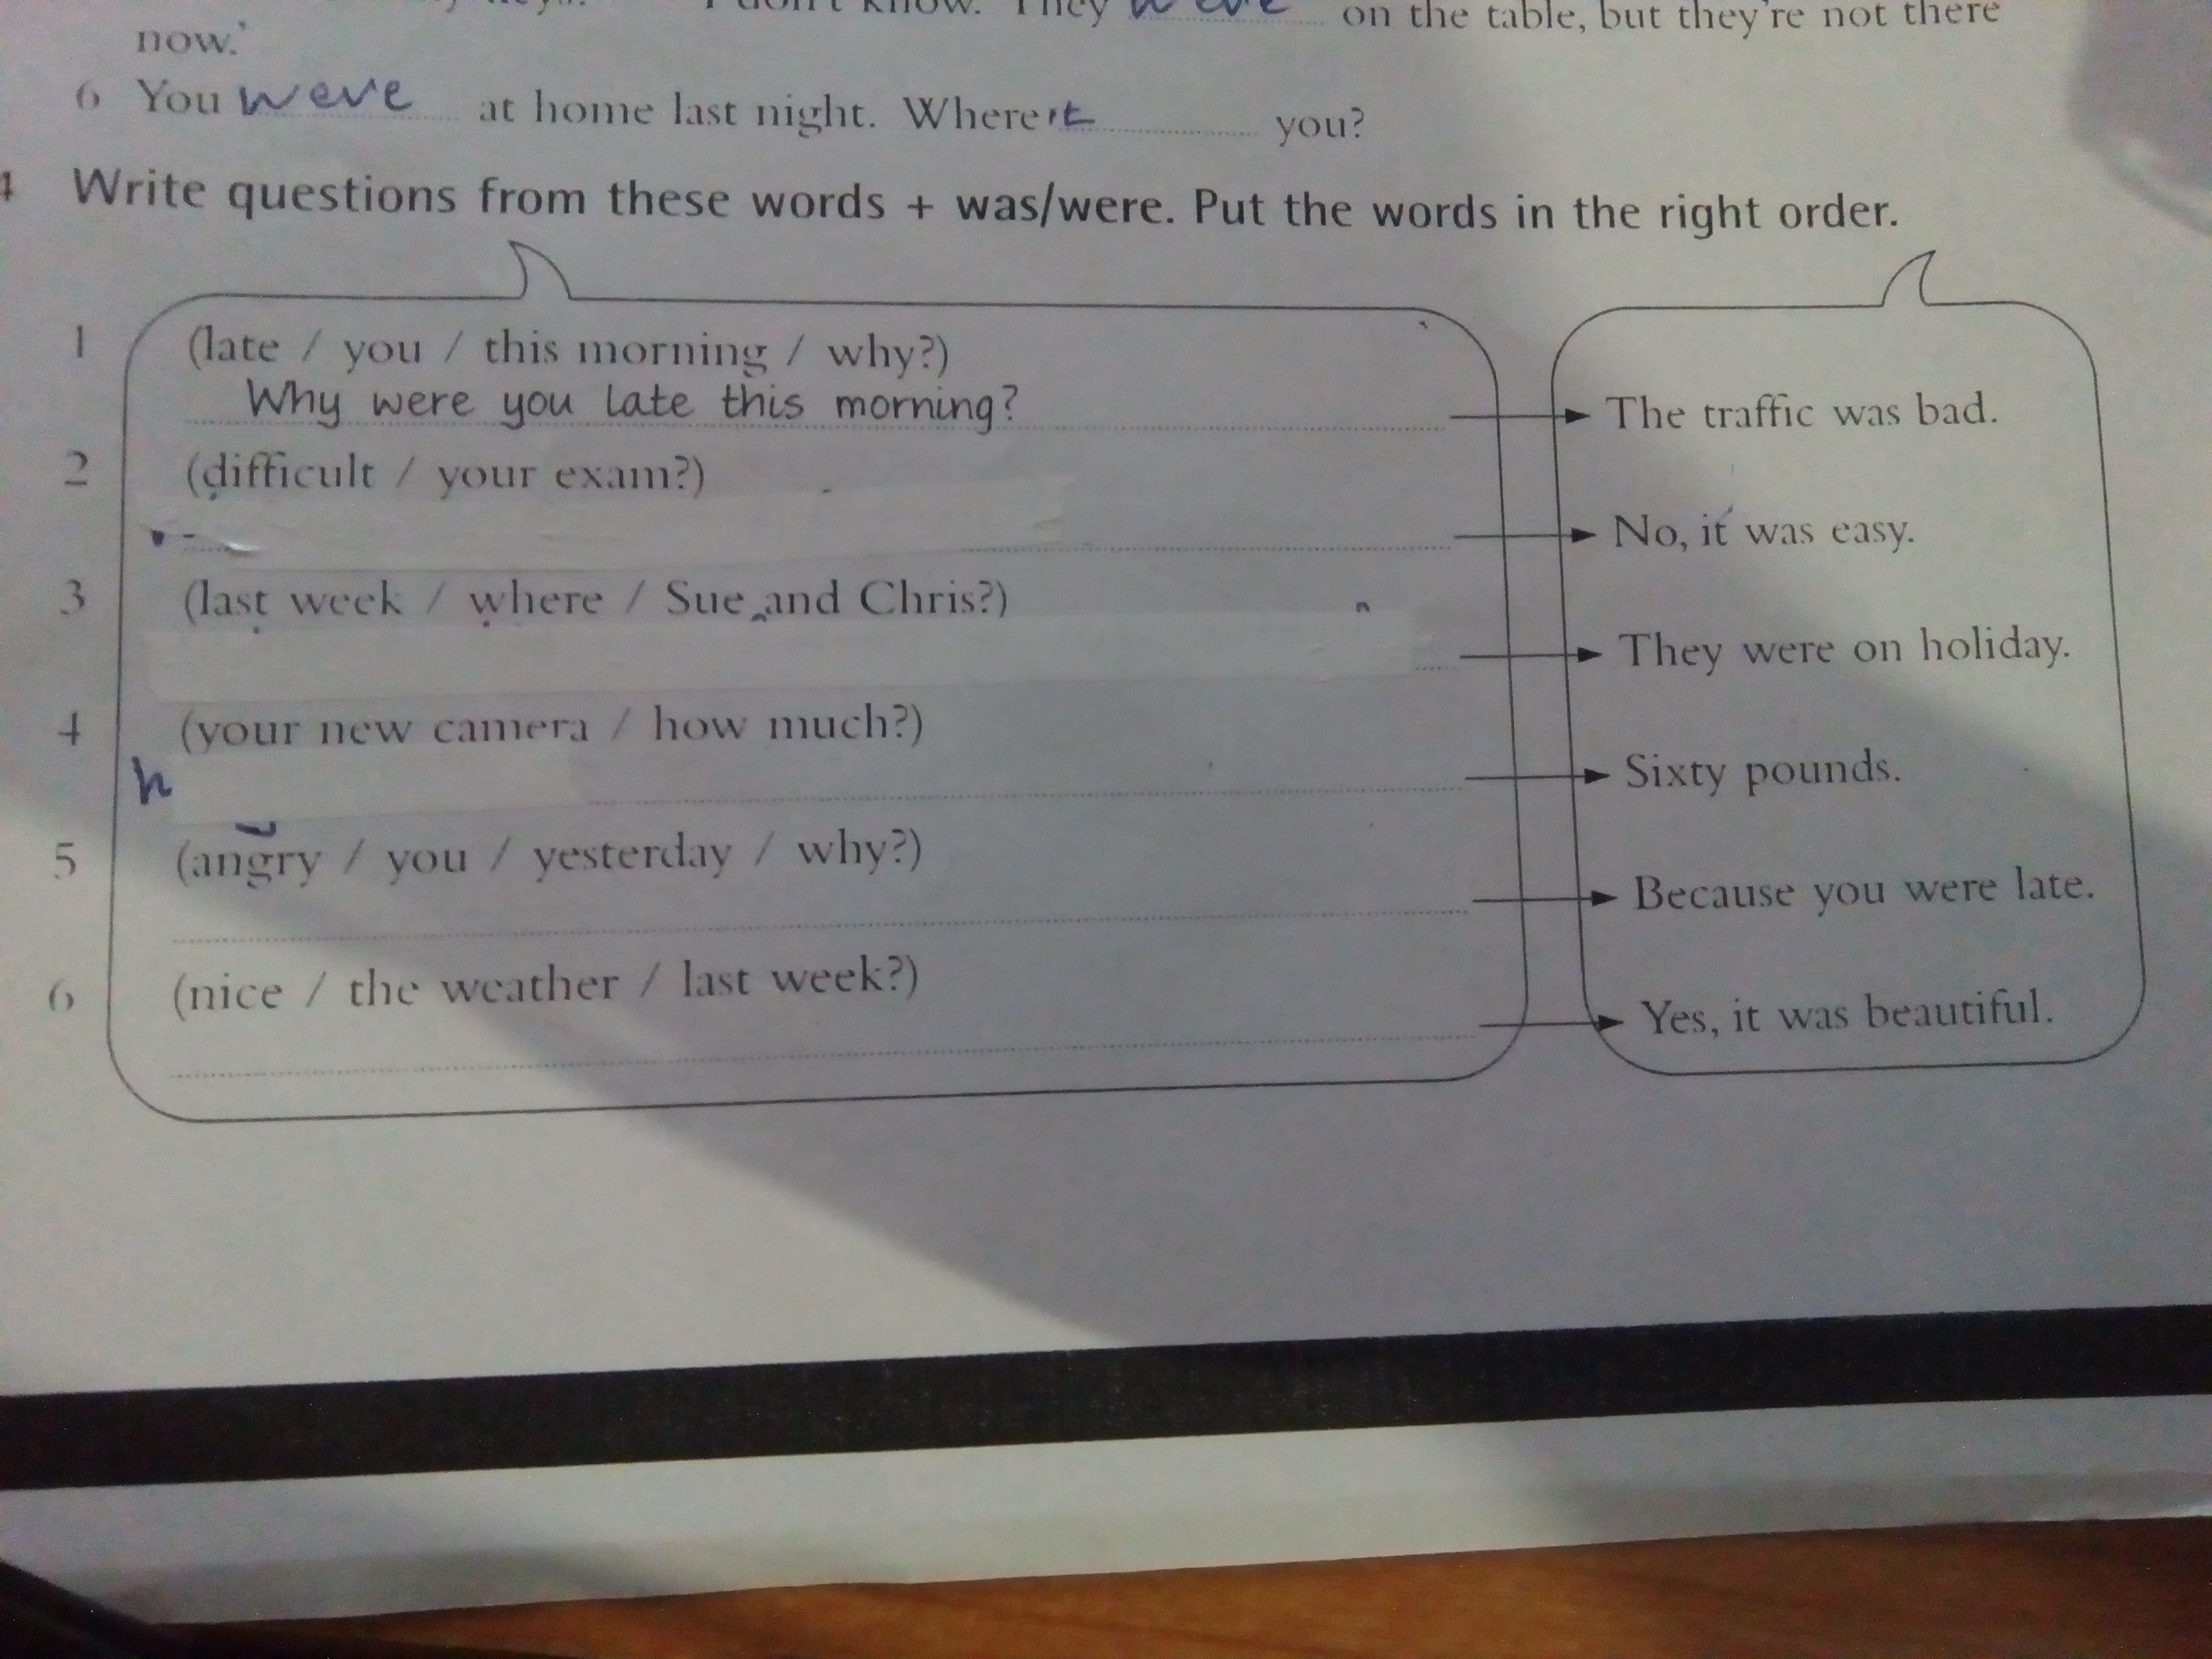 I don't know. They were on the table, but they're not there
now.'
6 You were at home last night. Where't you?
4 Write questions from these words + was/were. Put the words in the right order.
1 (late / you / this morning / why?)
Why were you late this morning? The traffic was bad.
2 (difficult / your exam?)
No, it was easy.
3 (last week / where / Sue and Chris?)
They were on holiday.
4 (your new camera / how much?)
h Sixty pounds.
5 (angry / you / yesterday / why?)
Because you were late.
6 (nice / the weather / last week?)
Yes, it was beautiful.